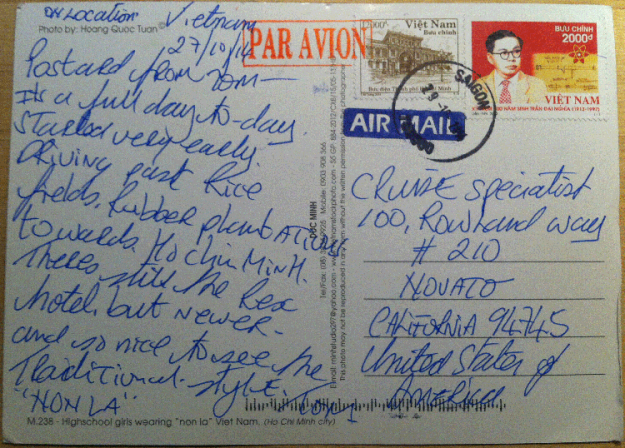 ON Location Vietnam
Photo by: Hoang Quoc Tuan ©
27/10/14
Postcard from TOM—
Its a full day to-day.
Started very early
driving past Rice
fields, Rubber plantations
towards Ho Chin MINH.
Theres still the Rex
hotel, but newer-
and so nice to see the
Traditional. style. Tom
"NON LA"
M.238 - Highschool girls wearing "non la" Viet Nam. (Ho Chi Minh city)
PAR AVION
2000đ
Việt Nam
Bưu chính
Bưu điện Thành phố Hồ Chí Minh
BƯU CHÍNH
2000đ
VIỆT NAM
SAIGON
AIR MAIL
NGOC MINH
Mobile: 0903 908 566
This photo may not be reproduced in any manner without the written permission
CRUISE Specialist
100, Rowland Way
# 210
NOVATO
CALIFORNIA 94745
United States of
America